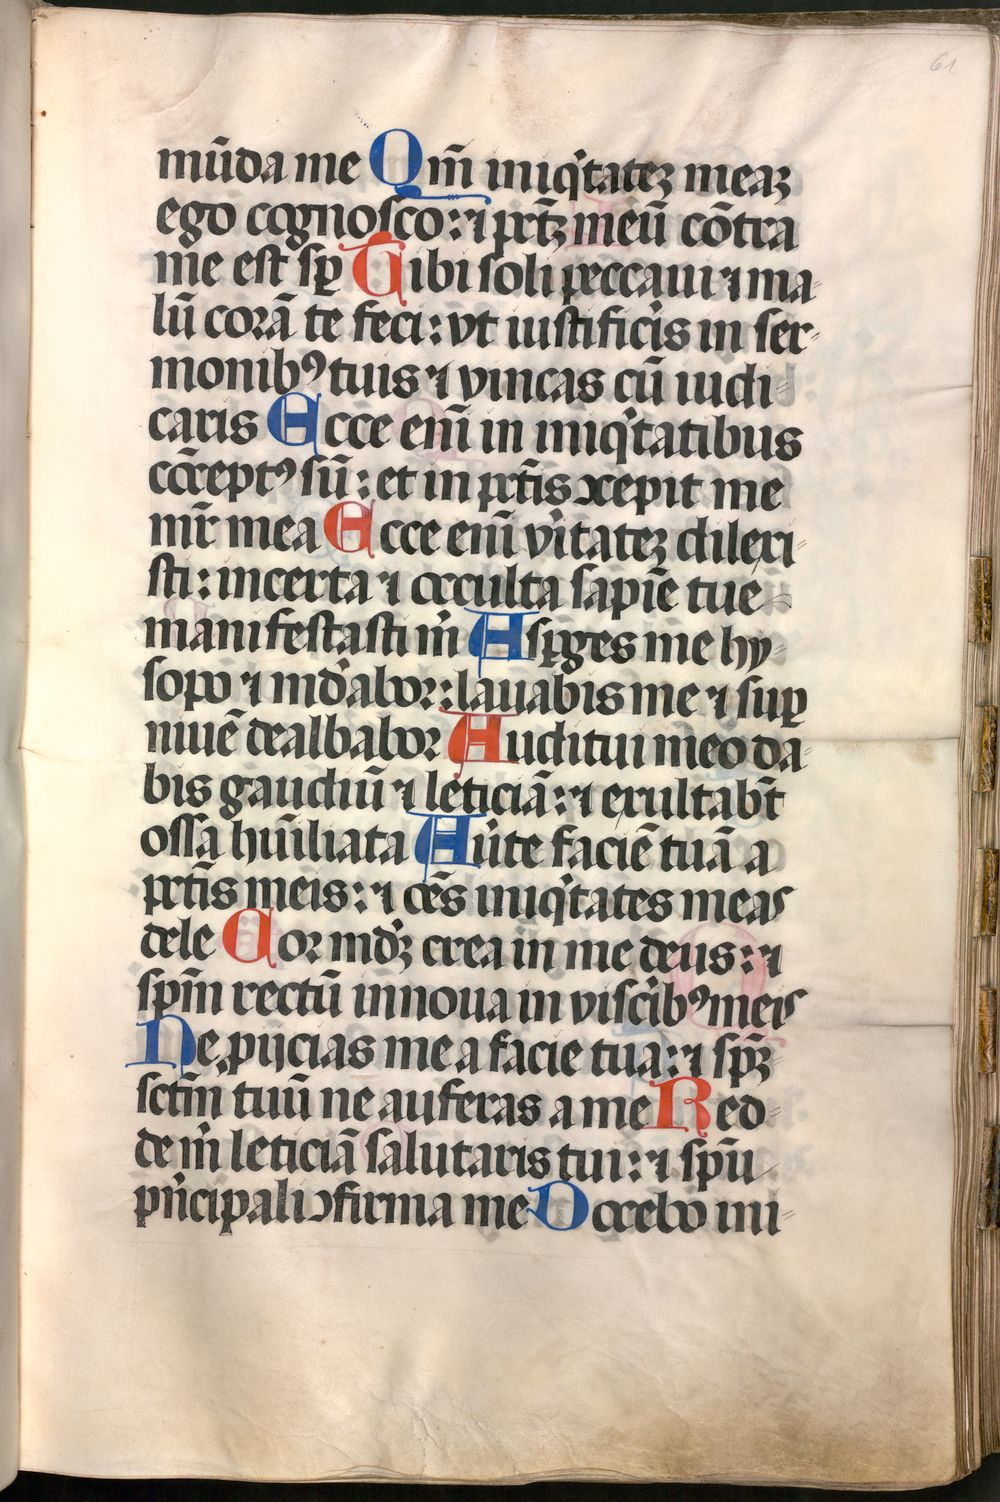 61
mūda me Qm̄ iniq̇tatez meaz
ego cognosco: ⁊ pctz̄ meū cōtra
me est sꝑ Tibi soli peccaui ⁊ ma
lū corā te feci: vt iustificis in ser-
monibꝰ tuis ⁊ vincas cū iudi-
caris Ecce enī in iniq̇tatibus
cōceptꝰ sū: et in pctīs ↄcepit me
mr̄ mea Ecce enī v̇itatez dilexi-
sti: incerta ⁊ occulta sapiē tue
manifestasti ṁ Asꝑges me hy-
sopo ⁊ mūdabor: lauabis me ⁊ suꝑ
niuē dealbabor Auditui meo da-
bis gaudiū ⁊ leticiā: ⁊ exultabt̄
ossa hūiliata Au̇te faciē tuā a
pctīs meis: ⁊ oēs iniq̇tates meas
dele Cor mūdz crea in me deus: ⁊
spm̄ rectū innoua in viscibꝰ meis
Ne ꝓijcias me a facie tua: ⁊ spz̄
sctm̄ tuū ne auferas a me Red-
de ṁ leticiā salutaris tui: ⁊ spū
pṅcipali ↄfirma me Docebo ini-